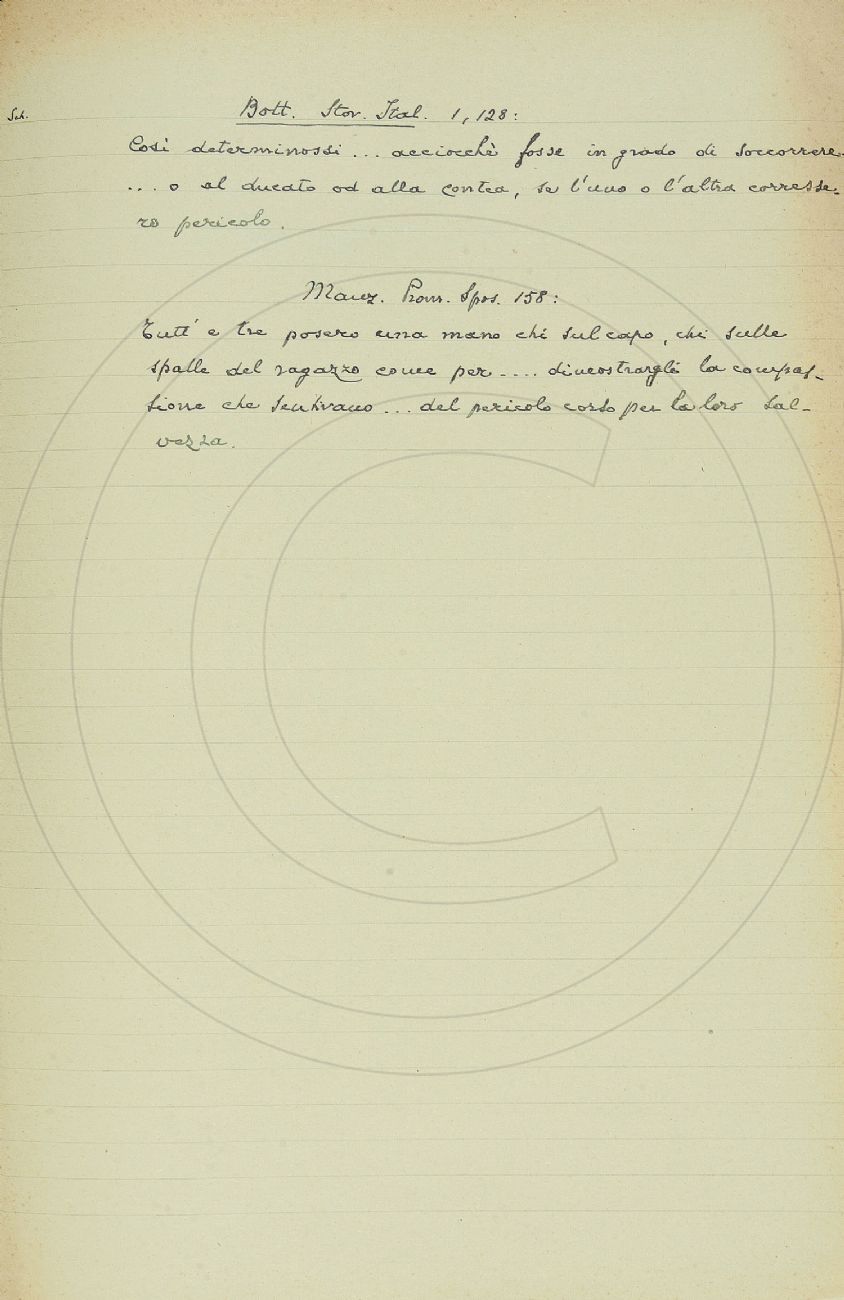 Sch.
Bott. Stor. Ital. 1, 128:
Così determinossi ... acciocchè fosse in grado di soccorrere
... o al ducato od alla contea, se l'uno o l'altra corresse-
ro pericolo.
Manz. Prom. Spos. 158:
Tutt' e tre posero una mano chi sul capo, chi sulle
spalle del ragazzo come per .... dimostrargli la compas-
sione che sentivano ... del pericolo corso per la loro sal-
vezza.